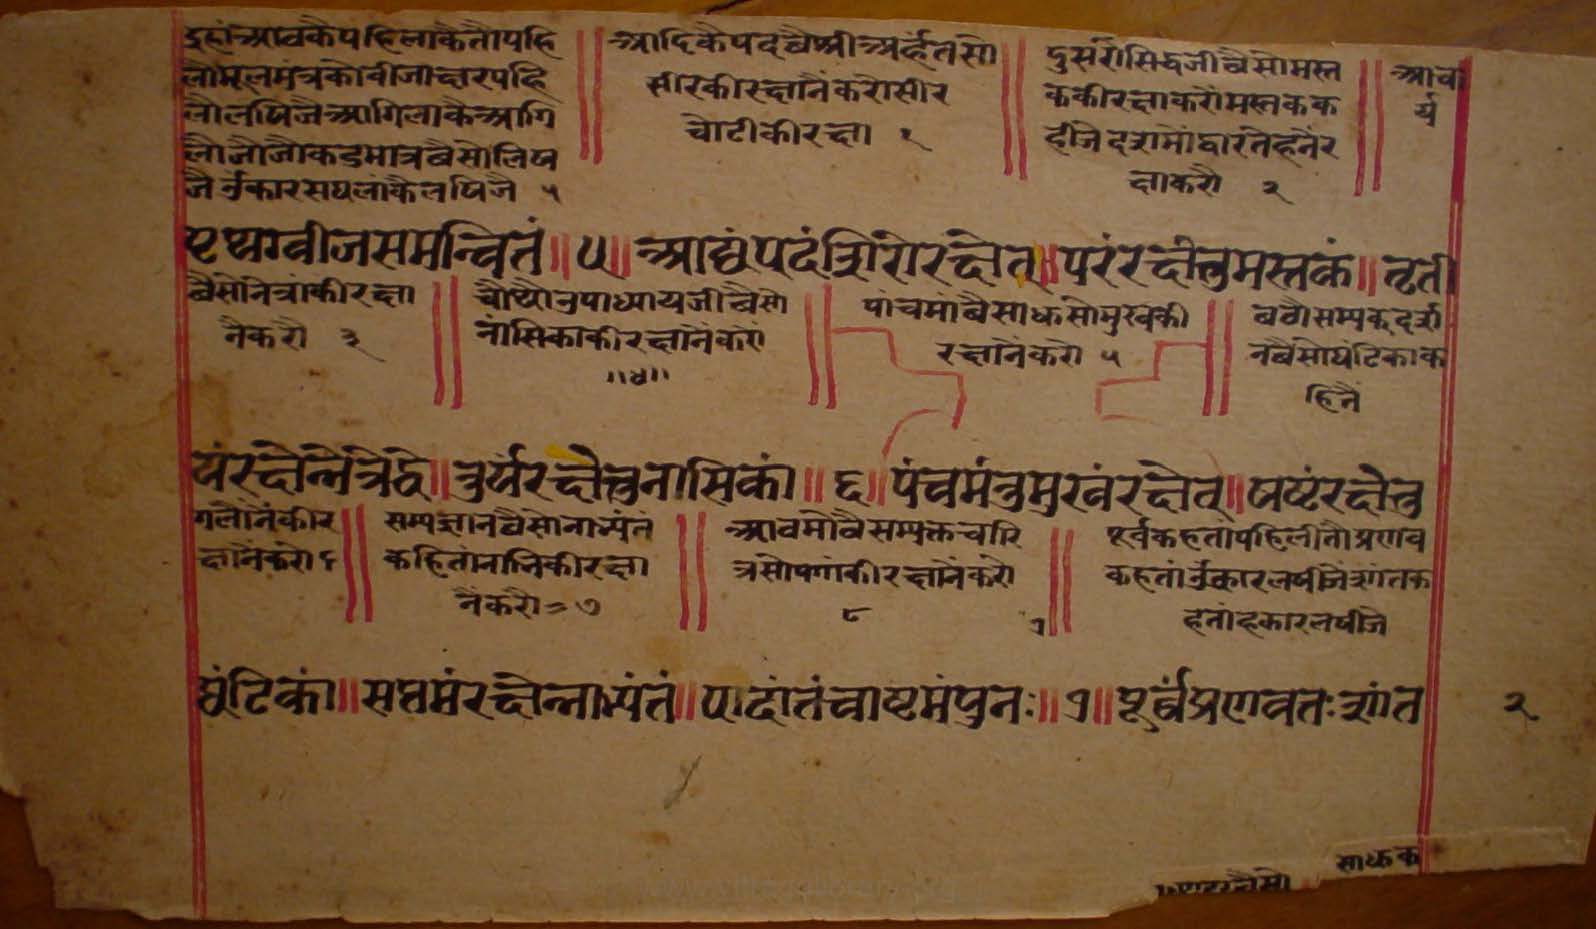 इहां आवकै पहिलाकै तौ पहि
लौ मूलमंत्र कौ बीजाक्षर पहि
लौ लषिजै आगिलाकै आगि
लौ जौ जौ कडमात्र बै सो लिष
जै ॐकार सघलांकै लषिजै ५
आदि कै पद बै श्री अर्हंत सो
सीरकी रक्षानैं करौ सीर
चोटी की रक्षा १
दुसरो सिद्धजी बै सो मस्त
ककी रक्षा करौ मस्तक क
हीजै दशमों द्वार तेहनैं र
क्षा करौ २
आचा
र्य
पृथग्बीजसमन्वितं ॥ ५ ॥ आद्यं पदं शिरो रक्षेत् ॥ परं रक्षेत्तु मस्तकं ॥ तृती
बै सो नेत्रांकी रक्षा
नै करौ ३
चौथौ उपाध्यायजी बै सो
नासिकाकी रक्षानैं करो
॥४॥
पांचमा बै साध सो मुखकी
रक्षानैं करो ५
बठौ सम्यक् दर्श
न बै सो घंटिका क
हिनैं
यं रक्षेन्नेत्रे द्वे ॥ तुर्यं रक्षेत्तु नासिकां ॥ ६ ॥ पंचमं तु मुखं रक्षेत् ॥ षष्टं रक्षेत्तु
गलौनंकी र
क्षानैं करो ६
सम्यज्ञान बै सो नाभ्यंतं
कहितां नाभिकी रक्षा
नैं करौ = ७
आवमो बै सम्यक्त चारि
त्र सो पगांकी रक्षानैं करो
८
पूर्व कहतां पहिली तौ प्रणव
कहतां ॐकार लषीजै शांत क
हतां हकार लषीजै
घंटिकां ॥ सप्तमं रक्षेन्नाभ्यंतं ॥ पादांतं चाष्टमं पुनः ॥ ७ ॥ पूर्वं प्रणवतः शांत
२
साधक